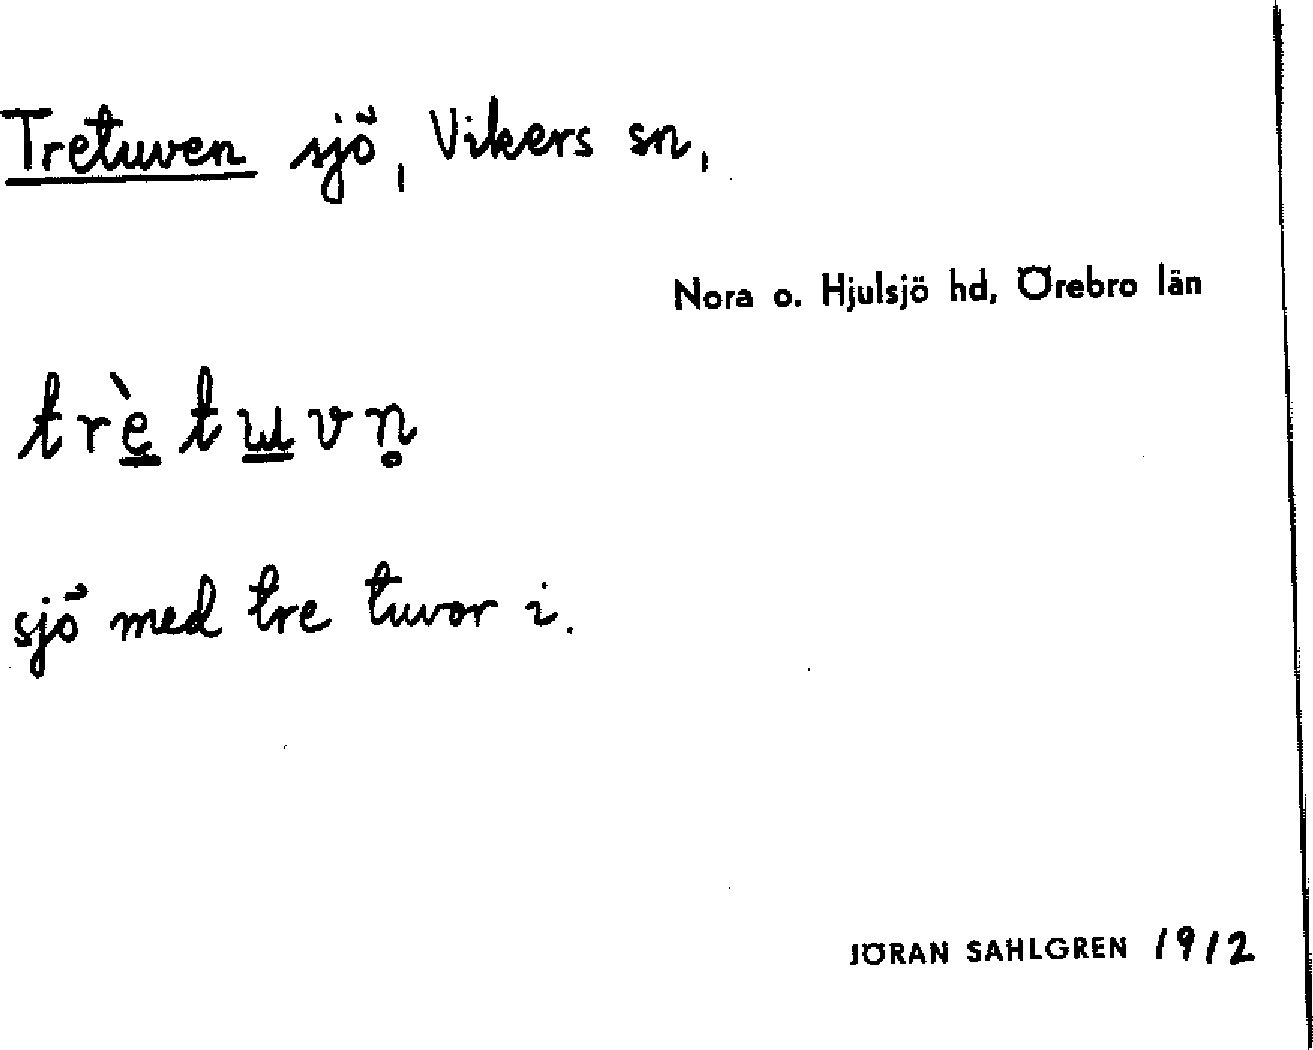 Tretuven sjö, Vikers sn,
Nora o. Hjulsjö hd, Örebro län
trè̲tu̲vn̥
sjö med tre tuvor i.
JÖRAN SAHLGREN 1912